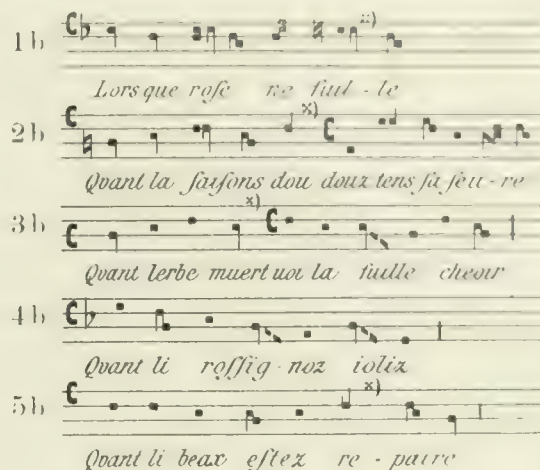 1b
x)
Lorsque rose ne fuil - le
2b
x)
Qvant la saisons dou douz tens sa seu - re
3b
x)
Qvant lerbe muert uoi la fuille cheoir
4b
Qvant li rossig - noz ioliz
5b
x)
Qvant li beax estez re - paire